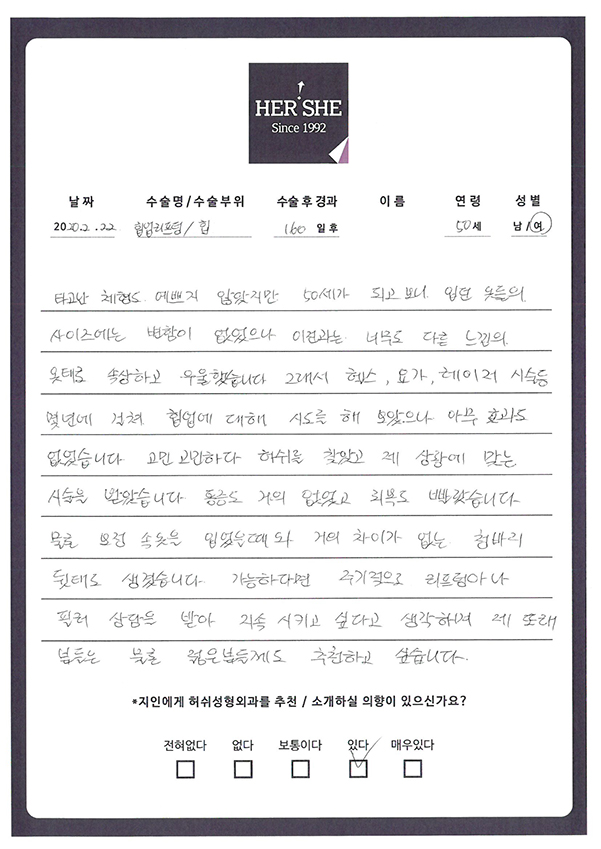 HER SHE
Since 1992
날짜 수술명/수술부위 수술후경과 이름 연령 성별
2020.2.22 힙업리프팅/힙 160 일후 50세 남/여
타고난 체형도 예쁘지 않았지만 50세가 되고보니 입던 옷들의
사이즈에는 변함이 없었으나 이전과는 너무도 다른 느낌의
옷태로 속상하고 우울했습니다 그래서 헬스, 요가, 레이저 시술등
몇년에 걸쳐 힙업에 대해 시도를 해 보았으나 아무 효과도
없었습니다 고민고민하다 허쉬를 찾았고 제 상황에 맞는
시술을 받았습니다 통증도 거의 없었고 회복도 빨랐습니다
물론 보정 속옷을 입었을때와 거의 차이가 없는
뒷태도 생겼습니다 가능하다면 주기적으로 리프팅이나
필러 상담을 받아 지속 시키고 싶다고 생각하며 제 또래
분들은 물론 젊은분들께도 추천하고 싶습니다.
*지인에게 허쉬성형외과를 추천 / 소개하실 의향이 있으신가요?
전혀없다 없다 보통이다 있다 매우있다